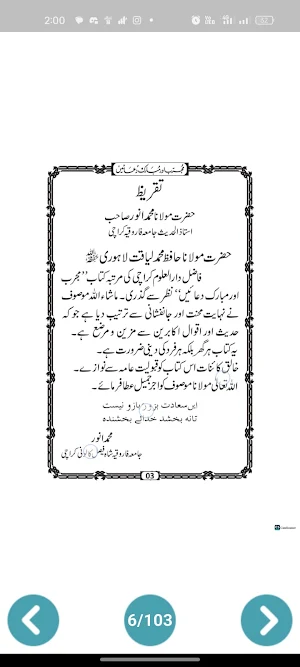 2:00
مجرب اور مبارک دعائیں
تقریظ
حضرت مولانا محمد انور صاحب
استاذ الحدیث جامعہ فاروقیہ کراچی
حضرت مولانا حافظ محمد لیاقت لاہوری
فاضل دارالعلوم کراچی کی مرتبہ کتاب ”مجرب
اور مبارک دعائیں“ نظر سے گذری۔ ماشاء اللہ موصوف
نے نہایت محنت اور جانفشانی سے ترتیب دیا ہے جو کہ
حدیث اور اقوال اکابرین سے مزین و مرصع ہے۔
یہ کتاب ہر گھر بلکہ ہر فرد کی دینی ضرورت ہے۔
خالق کائنات اس کتاب کو قبولیت عامہ سے نوازے۔
اللہ تعالیٰ مولانا موصوف کو اجر جمیل عطا فرمائے۔
ایں سعادت بزور بازو نیست
تانہ بخشد خدائے بخشندہ
محمد انور
جامعہ فاروقیہ شاہ فیصل کالونی کراچی
03
6/103